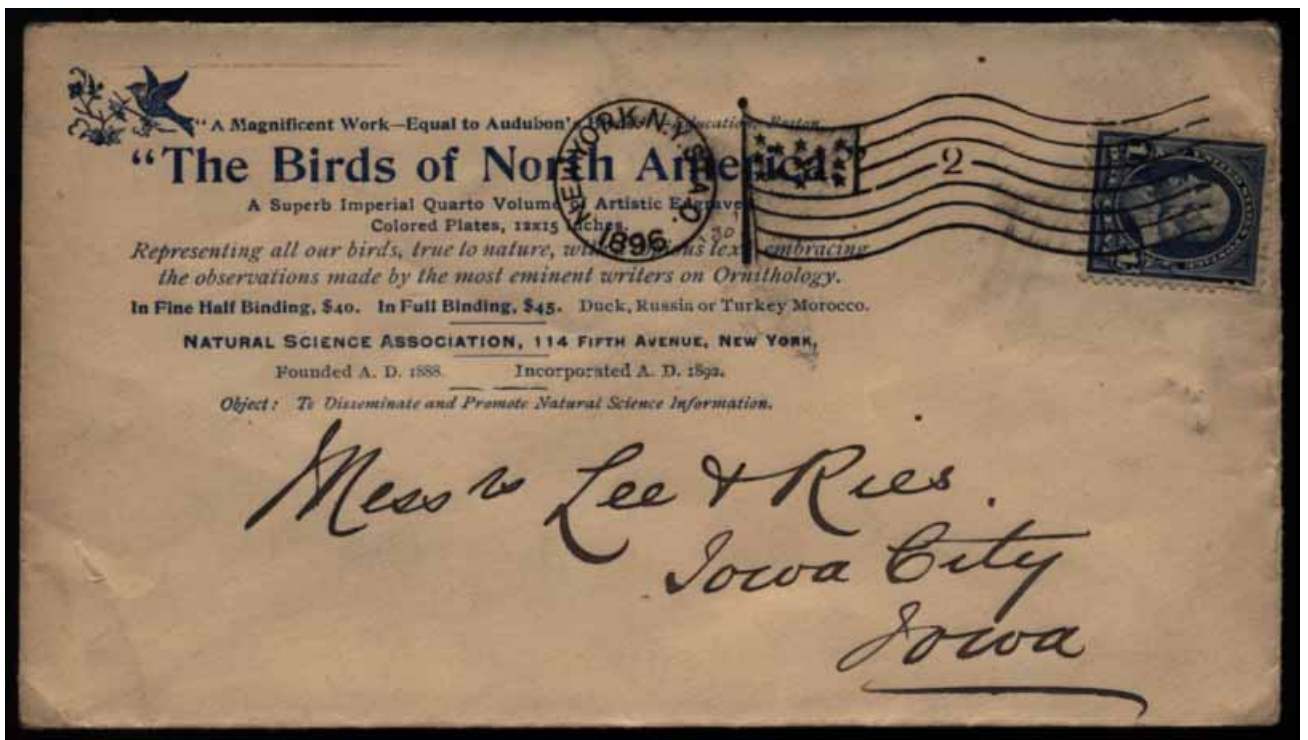 "A Magnificent Work—Equal to Audubon's Education, Boston.
"The Birds of North America,"
A Superb Imperial Quarto Volume of Artistic Engraved
Colored Plates, 12x15 inches.
Representing all our birds, true to nature, text embracing
the observations made by the most eminent writers on Ornithology.
In Fine Half Binding, $40. In Full Binding, $45. Duck, Russia or Turkey Morocco.
NATURAL SCIENCE ASSOCIATION, 114 FIFTH AVENUE, NEW YORK,
Founded A. D. 1888. Incorporated A. D. 1892.
Object: To Disseminate and Promote Natural Science Information.
NEW YORK, N.Y. STA. O.
1896
2
1 1
Messrs Lee & Ries.
Iowa City
Iowa